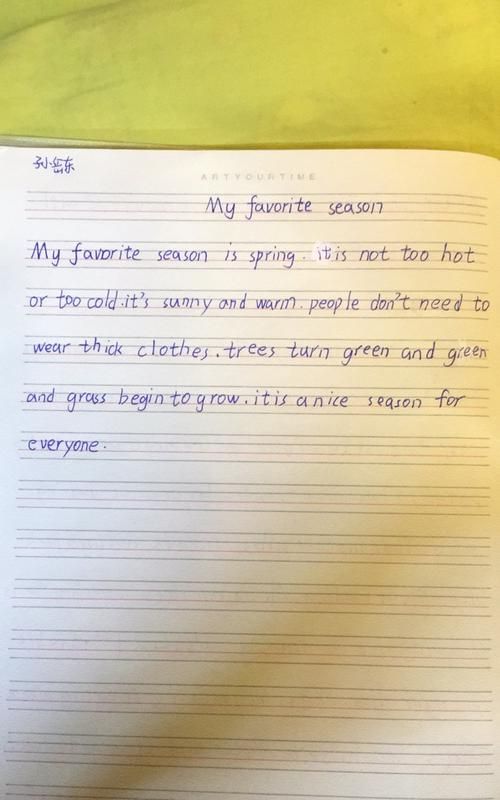 孙岳东
ARTYOURTIME
My favorite season
My favorite season is spring. it is not too hot
or too cold.it's sunny and warm. people don't need to
wear thick clothes. trees turn green and green
and grass begin to grow. it is a nice season for
everyone.